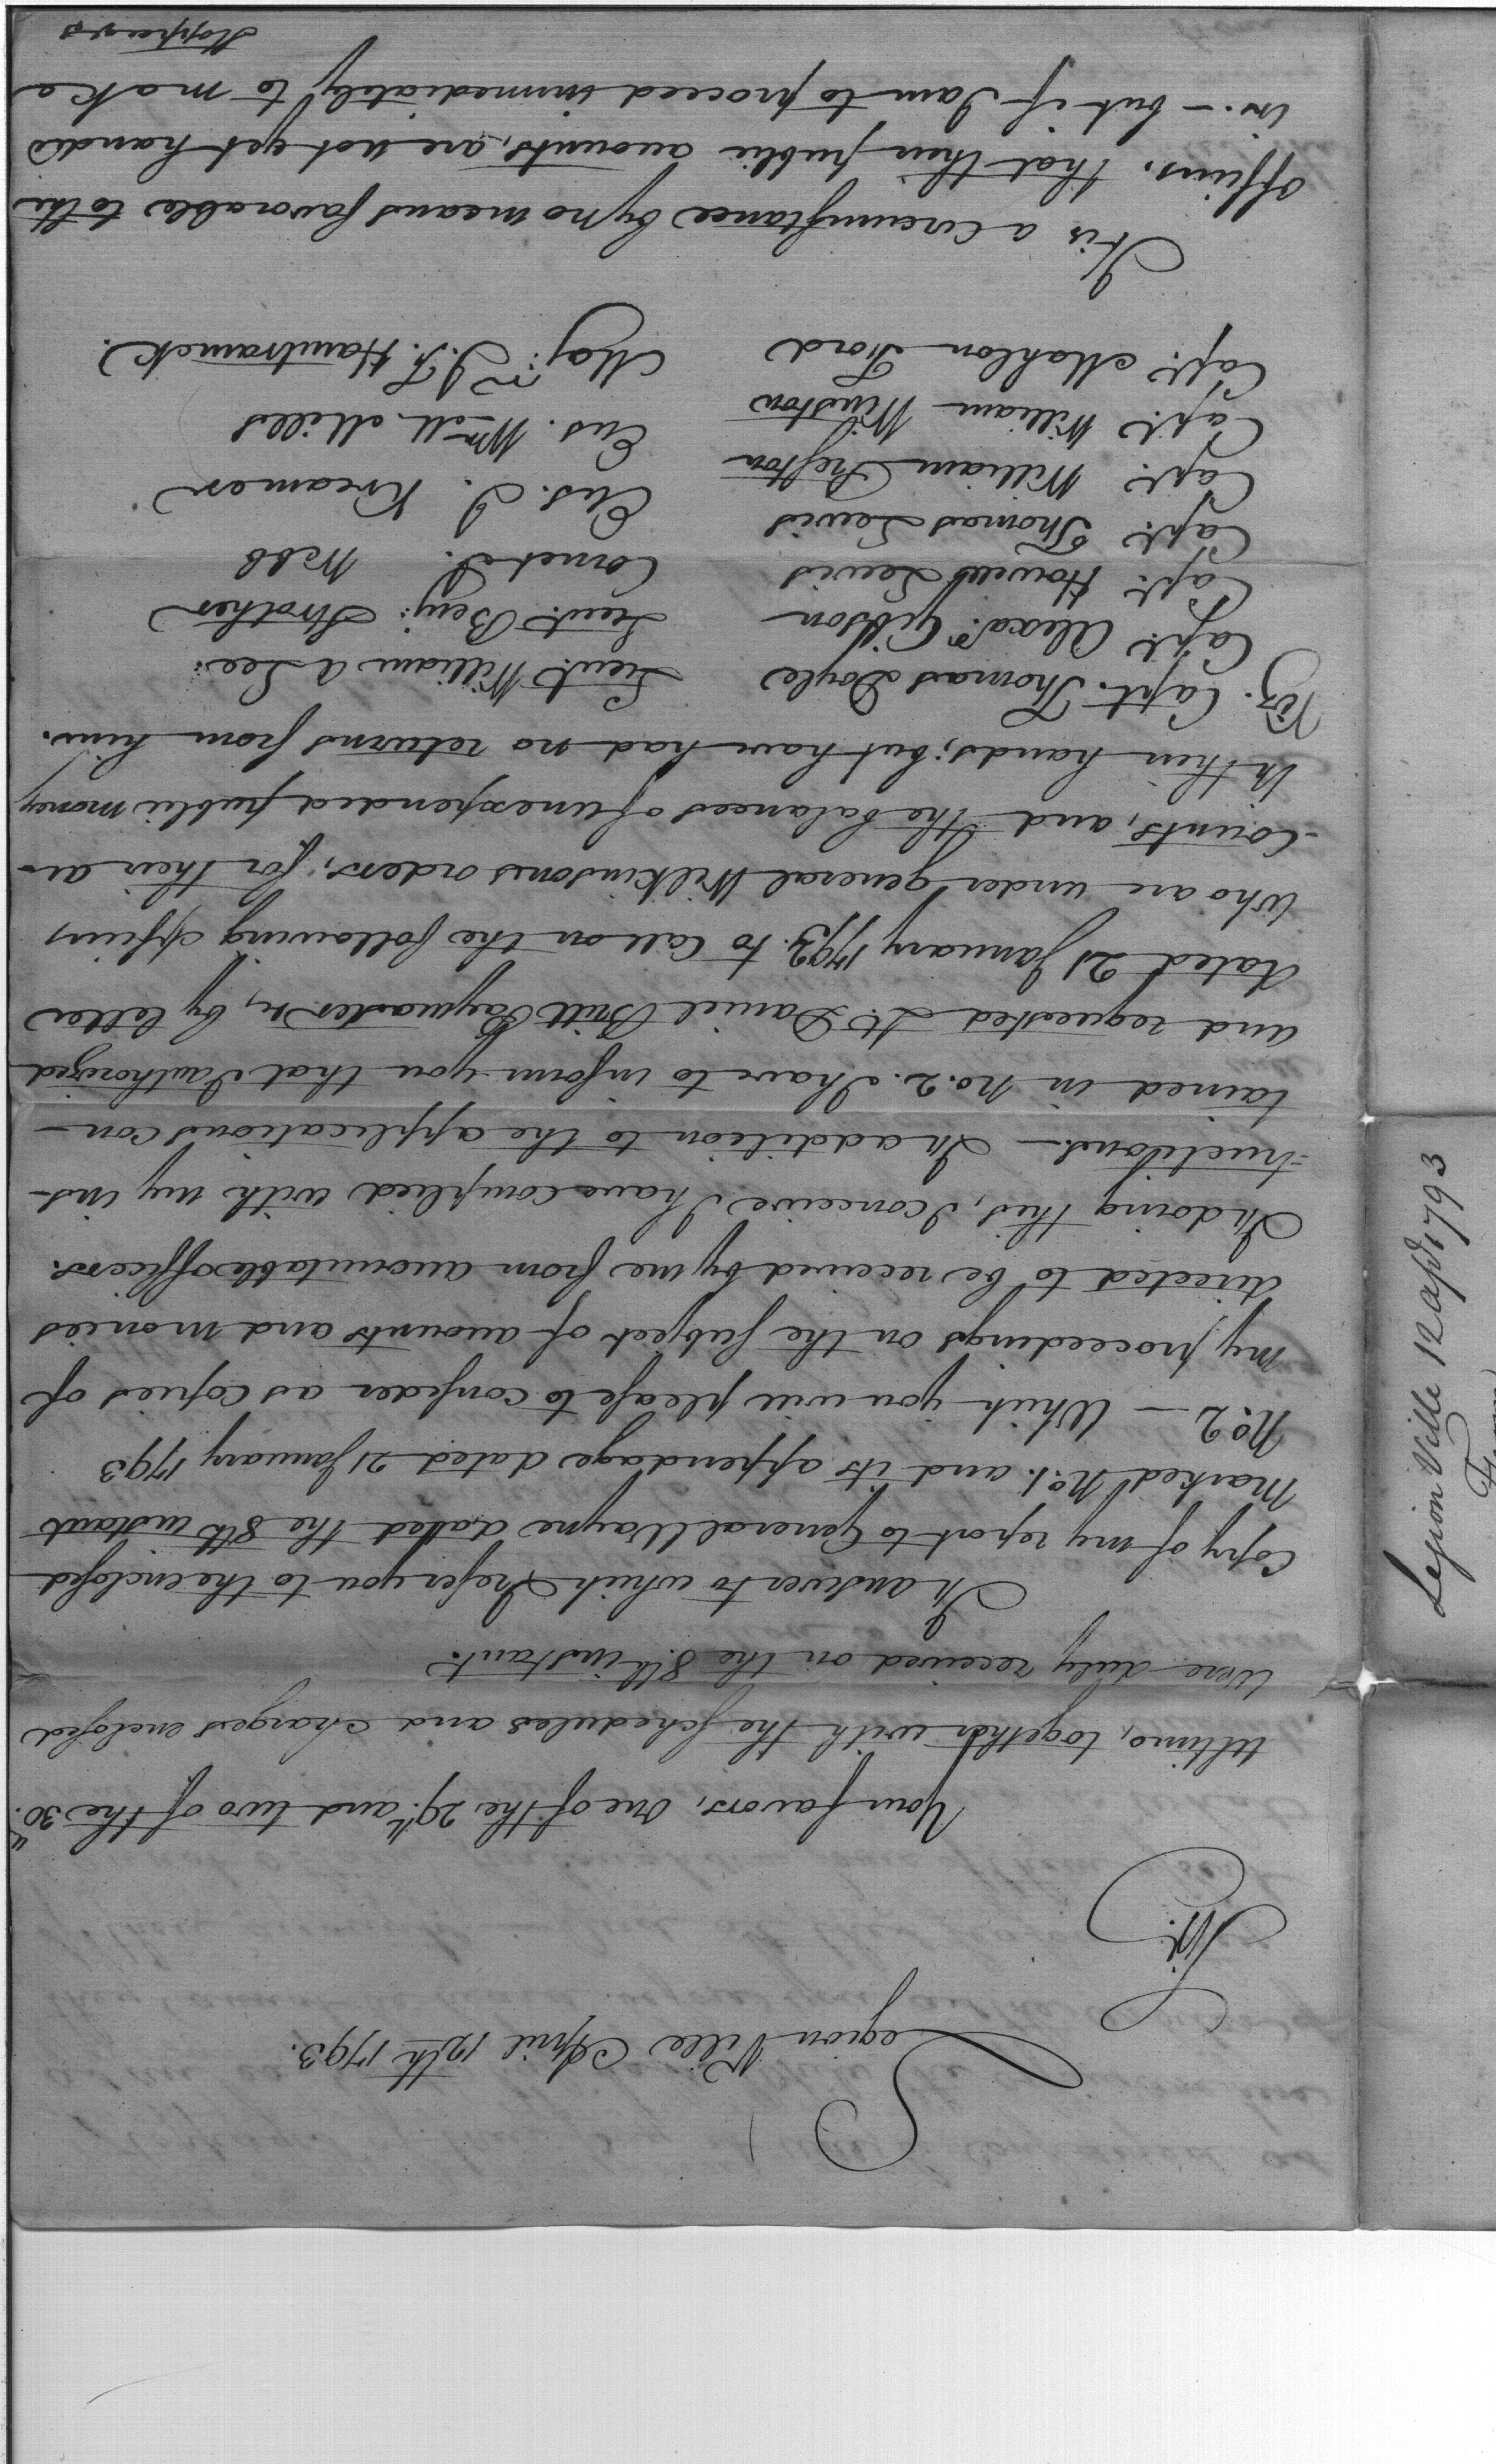 Legion Ville April 12th 1793.
Sir.
Your favors, one of the 29th and two of the 30th
Ultimo, together with the schedules and charges enclosed
were duly received on the 8th instant.
In answer to which I refer you to the enclosed
Copy of my report to General Wayne dated the 8th instant
Marked No. 1. and its appendage dated 21 January 1793
No. 2 — Which you will please to consider as copies of
my proceedings on the subject of accounts and monies
directed to be received by me from accountable officers.
In doing this, I conceive I have complied with my ins-
=tructions. — In addition to the applications con-
tained in No. 2. I have to inform you that I authorized
and requested Lt. Daniel Britt Paymaster &c, by letter
dated 21 January 1793. to call on the following officers
Who are under general Wilkinsons orders, for their ac-
-counts, and the balances of unexpended public money
in their hands; but have had no returns from him.
Viz. Capt. Thomas Doyle Lieut. William A Lee.
Capt. Alexdr. Gibson Lieut. Benj: Strother
Capt. Howell Lewis Cornet J. Webb
Capt. Thomas Lewis Ens. J. Kreamer
Capt. William Preston Ens. Wm. M. Mills
Capt. William Winston Maj: J. F. Hamtramck.
Capt. Mahlon Ford
It is a circumstance by no means favorable to the
officers, that their public accounts, are not yet handed
in. — but if I am to proceed immediately to make
Stoppages
Legion Ville 12 apl 1793
From